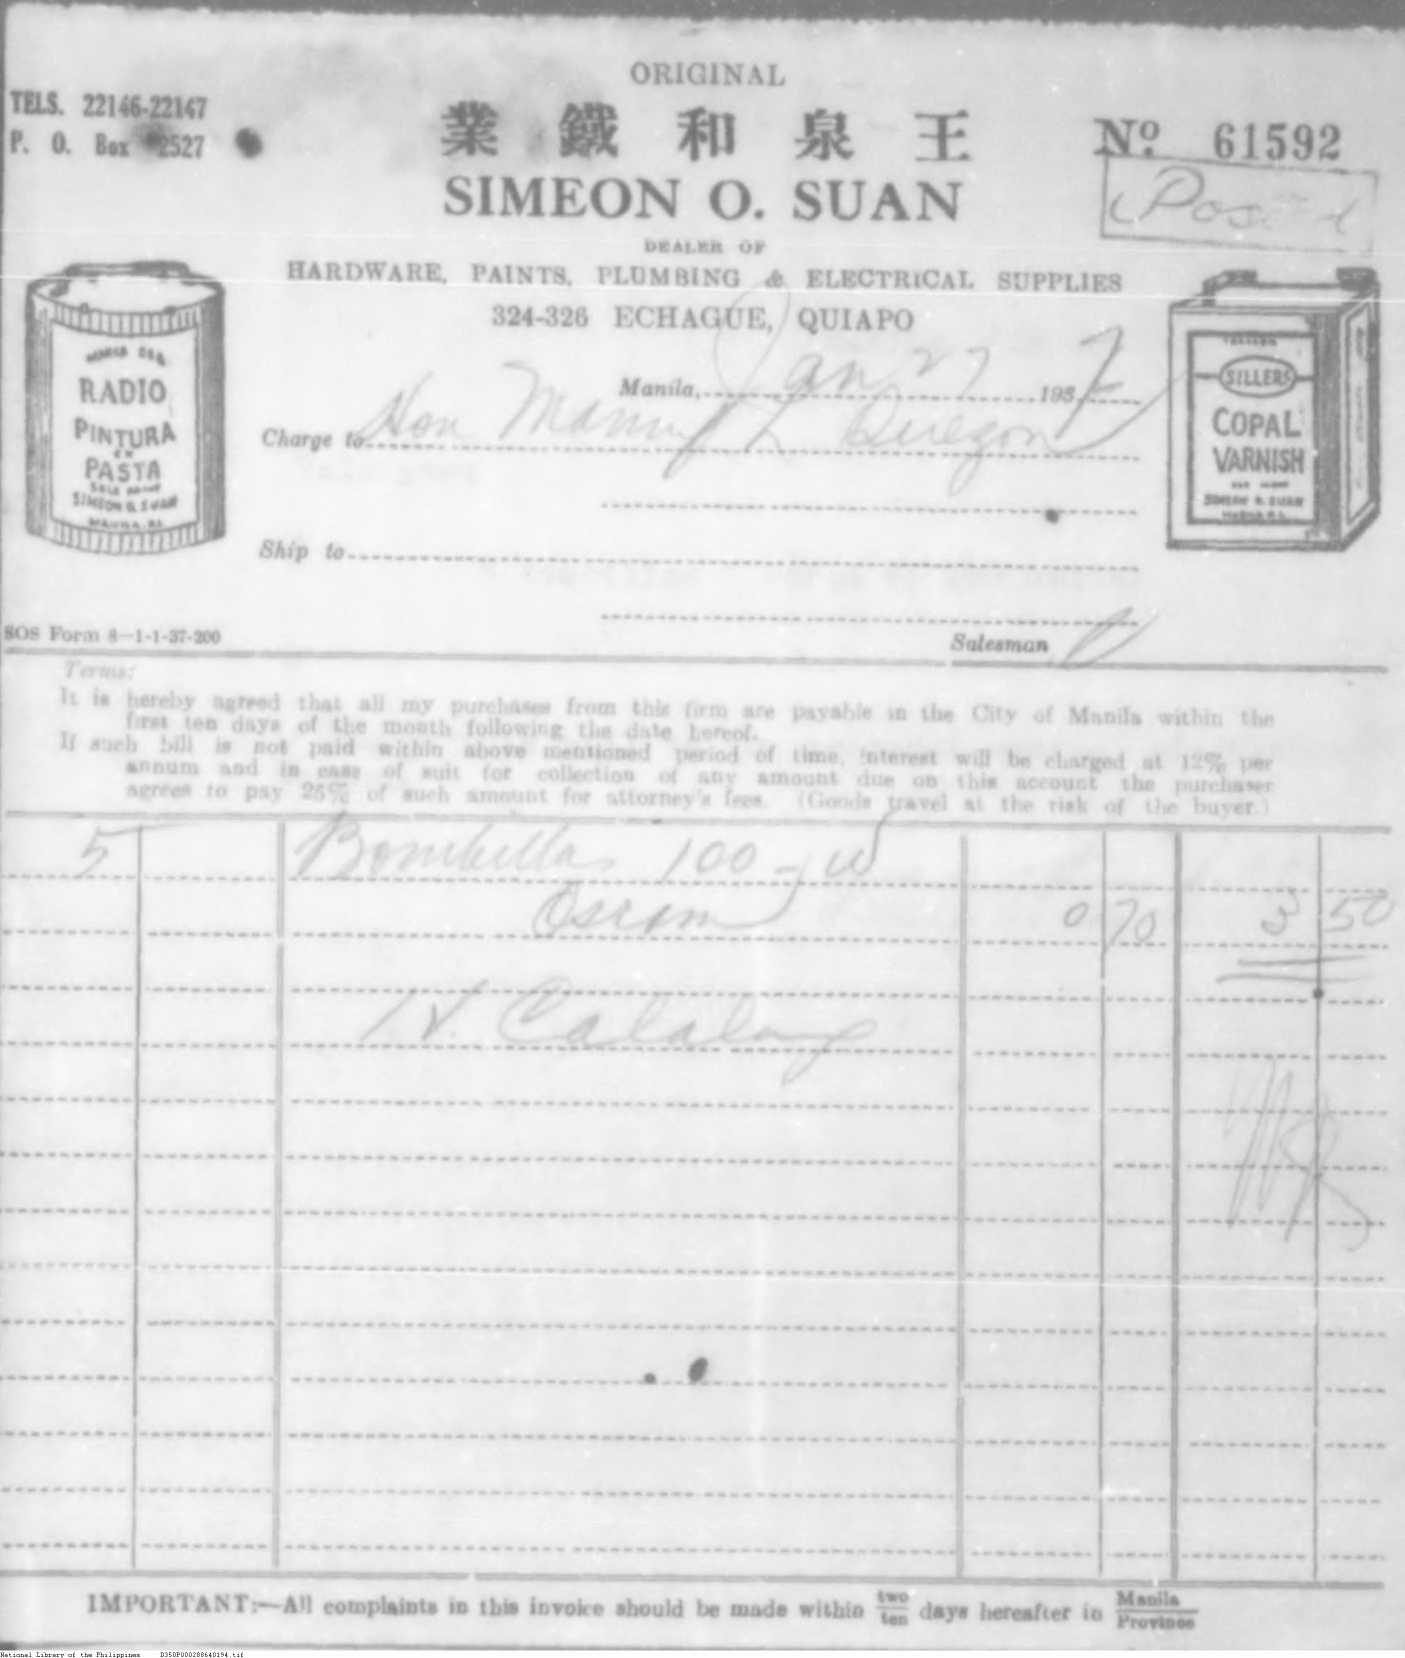 ORIGINAL
TELS. 22146-22147
P. O. Box 2527
業鐵和泉王
Nº 61592
Posted
SIMEON O. SUAN
DEALER OF
HARDWARE, PAINTS, PLUMBING & ELECTRICAL SUPPLIES
324-326 ECHAGUE, QUIAPO
Manila, Jan 27 1937
Charge to Hon Manuel L Quezon
Ship to
SOS Form 8—1-1-37-200
Salesman
RADIO
PINTURA
EN
PASTA
SIMEON O. SUAN
MANILA, P.I.
SILLERS
COPAL
VARNISH
SIMEON O. SUAN
MANILA, P.I.
Terms:
It is hereby agreed that all my purchases from this firm are payable in the City of Manila within the
first ten days of the month following the date hereof.
If such bill is not paid within above mentioned period of time, interest will be charged at 12% per
annum and in case of suit for collection of any amount due on this account the purchaser
agrees to pay 25% of such amount for attorney's fees. (Goods travel at the risk of the buyer.)
5 Bombillas 100-w
Osram 0 70 3 50
IMPORTANT:—All complaints in this invoice should be made within two/ten days hereafter in Manila/Province
National Library of the Philippines D350P000288640194.tif